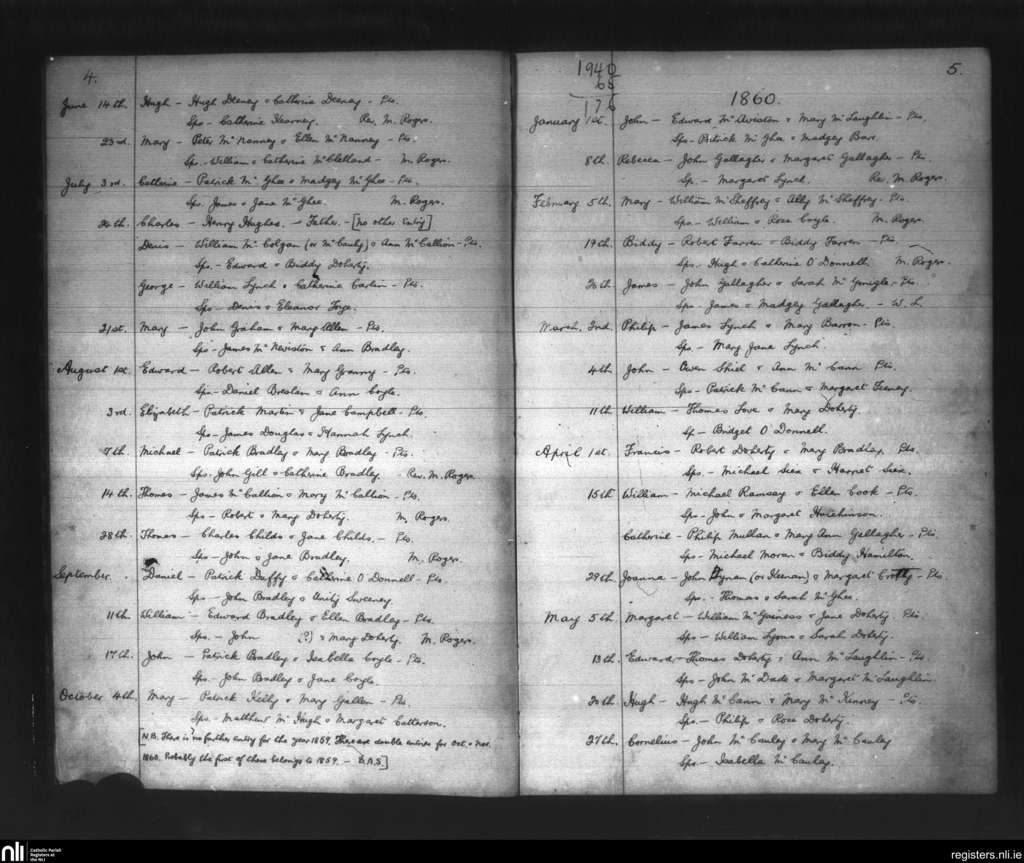 4.
June 14th. Hugh - Hugh Deeney & Catherine Deeney - Pts.
Sps - Catherine Kearney. Rev. M. Rogers.
23rd. Mary - Peter McNanney & Ellen McNanney - Pts.
Sps. - William & Catherine McClelland - M. Rogers.
July 3rd. Catherine - Patrick McGhee & Madgey McGhee - Pts.
Sps. James & Jane McGhee. M. Rogers.
Charles - Henry Hughes. - Father. - [no other Entry]
Denis - William McColgan (or McCauly) & Ann McCallion - Pts.
Sps. - Edward & Biddy Doherty.
George - William Lynch & Catherine Carlin - Pts.
Sps - Denis & Eleanor Toye.
21st. Mary - John Graham & Mary Allen - Pts.
Sps - James McNewiston & Ann Bradley.
August 1st. Edward - Robert Allen & Mary Granny - Pts.
Sps - Daniel Breslan & Ann Coyle.
3rd. Elizabeth - Patrick Martin & Jane Campbell - Pts.
Sps - James Douglas & Hannah Lynch.
7th. Michael - Patrick Bradley & Mary Bradley - Pts.
Sps. John Gill & Catherine Bradley. Rev. M. Rogers
14th. Thomas - James McCallion & Mary McCallion - Pts.
Sps - Robert & Mary Doherty. M. Rogers.
28th. Thomas - Charles Childs & Jane Childs. - Pts.
Sps - John & Jane Bradley. M. Rogers
September. Daniel - Patrick Duffy & Catherine O'Donnell - Pts.
Sps - John Bradley & Sweeney.
11th. William - Edward Bradley & Ellen Bradley - Pts.
Sps. - John (?) & Mary Doherty. M. Rogers.
17th. John - Patrick Bradley & Isabella Coyle - Pts.
Sps. John Bradley & Jane Coyle.
October 4th. Mary - Patrick Kelly & Mary Gallen - Pts.
Sps. Matthew McHugh & Margaret Catterson.
[N.B. There is no further entry for the year 1859. There are double entries for Oct. & Nov.
1860. Probably the first of these belongs to 1859. -
1940
65
176
5.
1860.
January 1st. John - Edward McAviston & Mary McLaughlin - Pts.
Sps - Patrick McGhee & Madgey Barr.
8th. Rebecca - John Gallagher & Margaret Gallagher - Pts.
Sp. - Margaret Lynch. Rev. M. Rogers.
February 5th. Mary - William McSheffrey & Ally McSheffrey - Pts.
Sps - William & Rose Coyle. M. Rogers
19th. Biddy - Robert Farren & Biddy Farren - Pts
Sps. Hugh & Catherine O'Donnell M. Rogers.
James - John Gallagher & Sarah McGonigle - Pts.
Sps - James & Madgey Gallagher. -
March. 2nd. Philip - James Lynch & Mary Barron - Pts.
Sp - Mary Jane Lynch
4th. John - Owen Shiel & Ann McCann Pts.
Sps - Patrick McCann & Margaret Feeney.
11th William - Thomas Love & Mary Doherty.
Sp - Bridget O'Donnell.
April 1st. Francis - Robert Doherty & Mary Bradley. Pts.
Sps. - Michael & Harriet
15th William - Michael Ramsay & Ellen Cook - Pts.
Sps - John & Margaret Hutchinson.
Catherine - Philip Mullan & Mary Ann Gallagher - Pts
Sps - Michael Moran & Biddy Hamilton.
29th. Joanna - John Hynan (or Keenan) & Margaret Crotty - Pts.
Sps. - Thomas & Sarah McGhee.
May 5th. Margaret - William McGuiness & Jane Doherty. Pts.
Sps - William Lyons & Sarah Doherty.
13th. Edward - Thomas Doherty & Ann McLaughlin - Pts.
Sps - John McDade & Margaret McLaughlin
20th Hugh - Hugh McCann & Mary McKinney - Pts
Sps. - Philip & Rose Doherty.
27th. Cornelius - John McCauley & Mary McCauley
Sps - Isabella McCauley.
nli Catholic Parish
Registers at
the NLI
registers.nli.ie